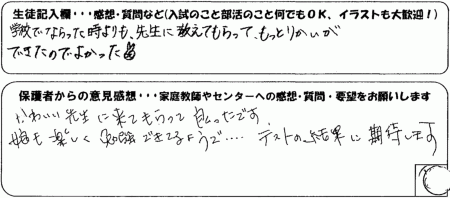 生徒記入欄・・・感想・質問など(入試のこと部活のこと何でもOK、イラストも大歓迎!)
学校でならった時よりも、先生に教えてもらって、もっとりかいが
できたのでよかった
保護者からの意見感想・・・家庭教師やセンターへの感想・質問・要望をお願いします
かわいい先生に来てもらって良かったです。
娘も楽しく勉強できてるようで‥‥ テストの結果に期待します